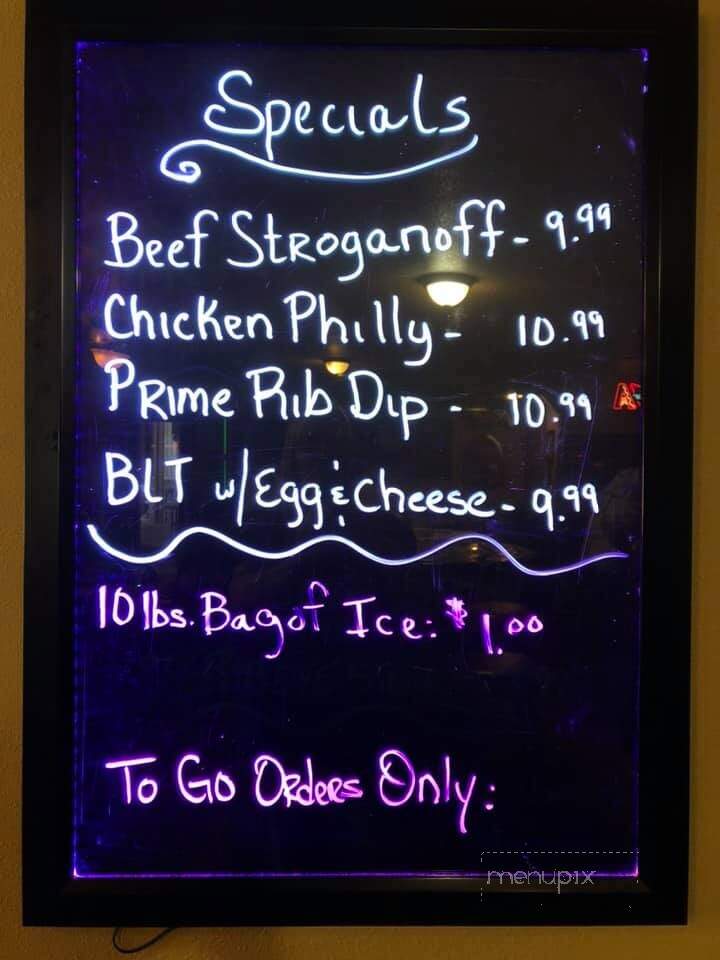 Specials
Beef Stroganoff - 9.99
Chicken Philly - 10.99
Prime Rib Dip - 10.99
BLT w/ Egg & Cheese - 9.99
10 lbs. Bag of Ice: $1.00
To Go Orders Only:
menupix